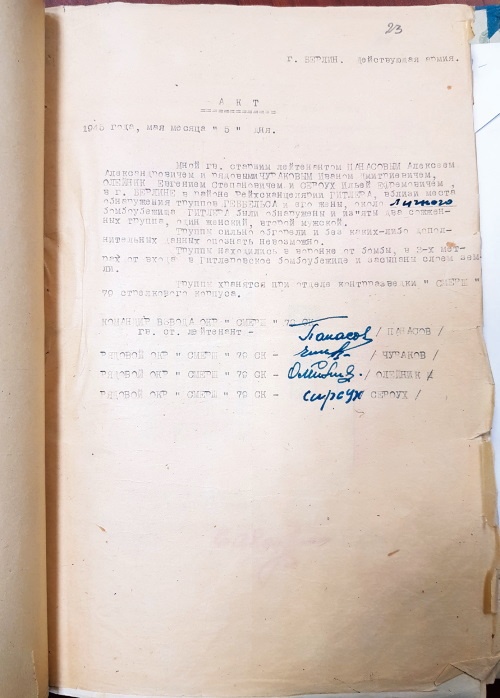 23
г. БЕРЛИН. Действующая армия.
А К Т
1945 года, мая месяца " 5 " дня.
Мной гв. старшим лейтенантом ПАНАСОВЫМ Алексеем
Александровичем и рядовыми ЧУРАКОВЫМ Иваном Дмитриевичем,
ОЛЕЙНИК Евгением Степановичем и СЕРОУХ Ильей Ефремовичем ,
в г. БЕРЛИНЕ в районе Рейхсканцелярии ГИТЛЕРА, вблизи места
обнаружения трупов ГЕББЕЛЬСА и его жены, около личного
бомбоубежища ГИТЛЕРА были обнаружены и изъяты два сожжен-
ных трупа, один женский, второй мужской.
Трупы сильно обгорели и без каких-либо допол-
нительных данных опознать невозможно.
Трупы находились в воронке от бомбы, в 3-х мет-
рах от входа в Гитлеровское бомбоубежище и засыпаны слоем зем-
ли.
Трупы хранятся при отделе контрразведки " СМЕРШ "
79 стрелкового корпуса.
КОМАНДИР ВЗВОДА ОКР " СМЕРШ " 79 СК -
гв. ст. лейтенант - Панасов / ПАНАСОВ /
РЯДОВОЙ ОКР " СМЕРШ " 79 СК - / ЧУРАКОВ /
РЯДОВОЙ ОКР " СМЕРШ " 79 СК - Олейник / ОЛЕЙНИК /
РЯДОВОЙ ОКР " СМЕРШ " 79 СК - сироух СЕРОУХ /